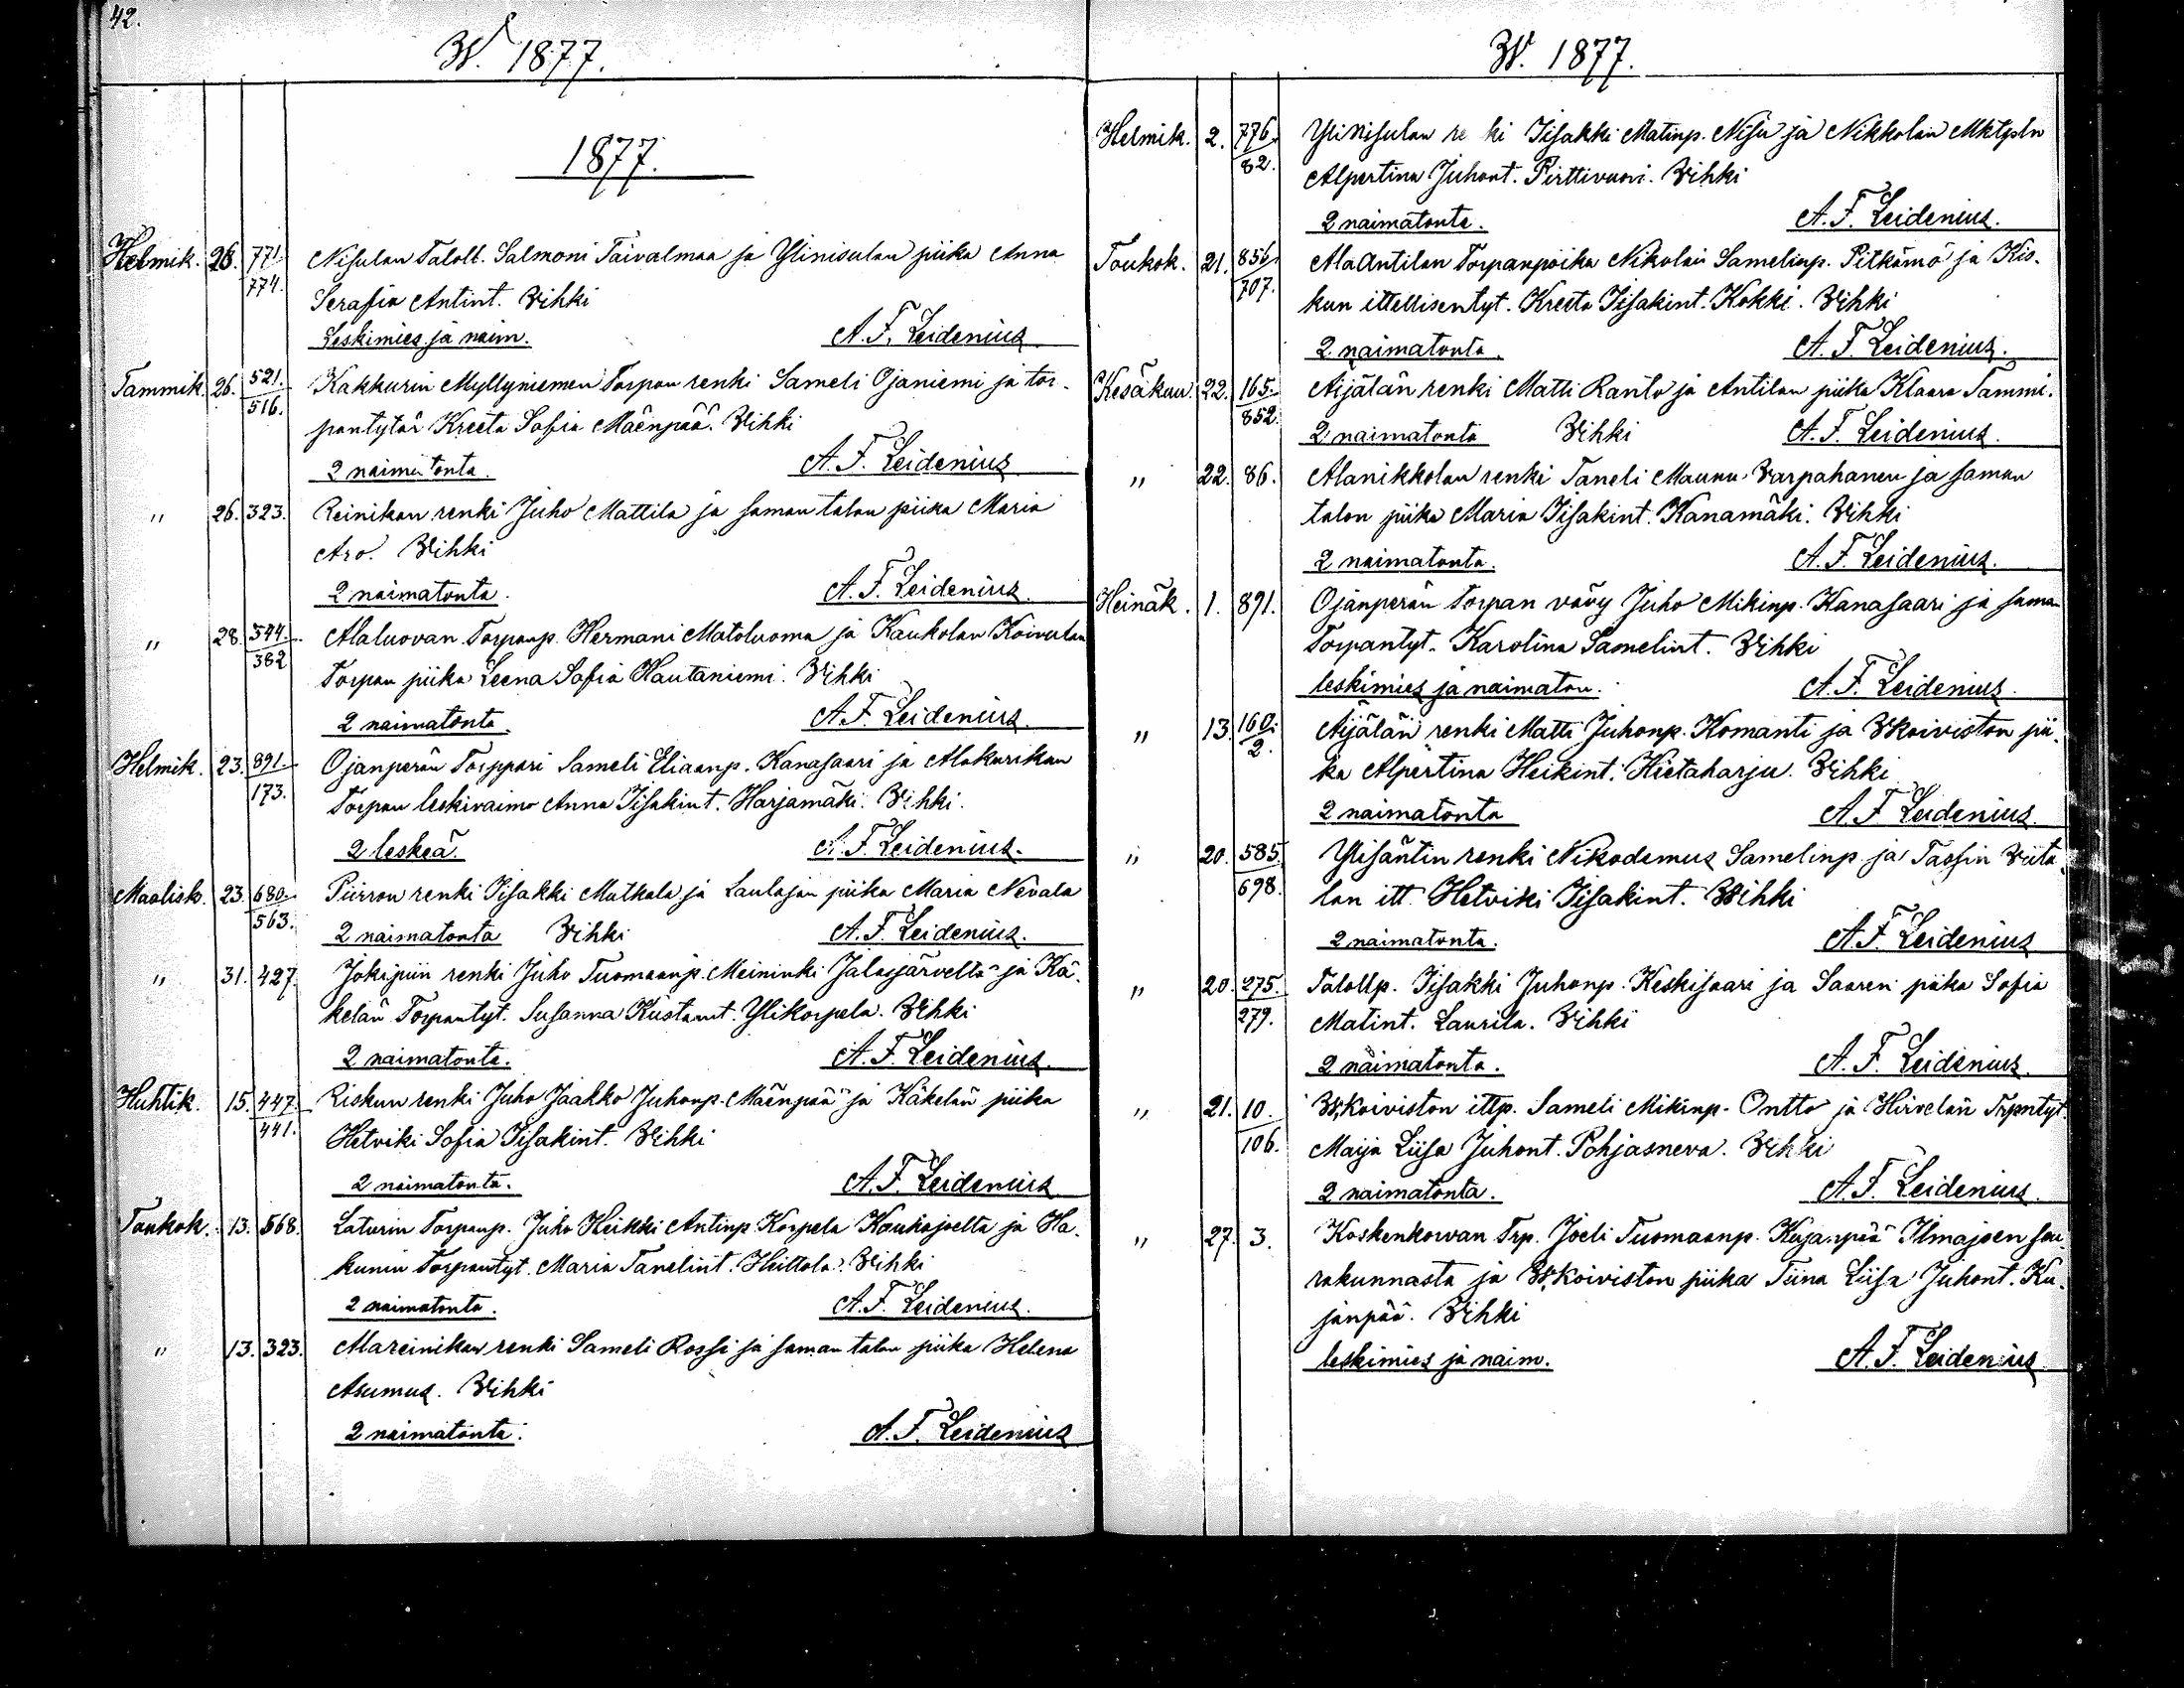 42.
W. 1877.
1877.
Helmik. 28. 771./774. Nisulan Taloll. Salmoni Taivalmaa ja Ylinisulan piika Anna
Serafia Antint. Vihki
Leskimies ja naim. A. F. Leidenius
Tammik. 26. 521./516. Kakkurin Myllyniemen Torpan renki Sameli Ojaniemi ja tor-
pantytär Kreeta Sofia Mäenpää. Vihki
2 naimatonta. A. F. Leidenius
" 26. 323. Reinikan renki Juho Mattila ja saman talon piika Maria
Aro. Vihki
2 naimatonta. A. F. Leidenius.
" 28. 544./382 Alaluovan Torpanp. Hermani Matoluoma ja Kaukolan Koivulan
Torpan piika Leena Sofia Hautaniemi. Vihki
2 naimatonta. A. F. Leidenius.
Helmik. 23. 891./173. Ojanperän Torppari Sameli Eliaanp. Kanasaari ja Alakurikan
Torpan leskivaimo Anna Iisakint. Harjamäki. Vihki.
2 leskeä. A. F. Leidenius.
Maalisk. 23. 680./563. Piirron renki Iisakki Mutkala ja Laulajan piika Maria Nevala
2 naimatonta Vihki A. F. Leidenius.
" 31. 427. Jokipiin renki Juho Tuomaanp. Meininki Jalasjärveltä ja Kä-
kelän Torpantyt. Susanna Kustaant. Ylikorpela. Vihki
2 naimatonta. A. F. Leidenius.
Huhtik. 15. 447./441. Riskun renki Juho Jaakko Juhonp. Mäenpää ja Käkelän piika
Hetviki Sofia Iisakint. Vihki
2 naimatonta. A. F. Leidenius
Toukok. 13. 568. Laturin Torpanp. Juho Heikki Antinp. Korpela Kauhajoelta ja Ha-
kunin Torpantyt. Maria Tanelint. Heittola. Vihki
2 naimatonta. A. F. Leidenius.
" 13. 323. Mareinikan renki Sameli Rossi ja saman talon piika Helena
Asumus. Vihki
2 naimatonta. A. F. Leidenius
W. 1877.
Helmik. 2. 776./82. Ylinisulan re ki Iisakki Matinp. Nisu ja Nikkolan Mktpln
Alpertina Juhont. Pirttivuori. Vihki
2 naimatonta. A. F. Leidenius.
Toukok. 21. 856./707. Alaantilan Torpanpoika Nikolai Samelinp. Pitkämö ja Kis-
kun ittellisentyt. Kreeta Iisakint. Kokki. Vihki
2 naimatonta. A. F. Leidenius.
Kesäkuu. 22. 165./852. Äijälän renki Matti Ranto ja Antilan piika Klaara Tammi.
2 naimatonta Vihki A. F. Leidenius.
" 22. 86. Alanikkolan renki Taneli Maunu Varpahanen ja saman
talon piika Maria Iisakint. Kanamäki. Vihki
2 naimatonta. A. F. Leidenius.
Heinäk. 1. 891. Ojanperän Torpan vävy Juho Mikinp. Kanasaari ja saman
Torpantyt. Karolina Samelint. Vihki
leskimies ja naimaton. A. F. Leidenius.
" 13. 160./2. Äijälän renki Matti Juhonp. Komanti ja Wkoiviston pii-
ka Alpertina Heikint. Hietaharju. Vihki
2 naimatonta A. F. Leidenius.
" 20. 585./698. Ylisäntin renki Nikodemus Samelinp. ja Tassin Viita-
lan itt. Hetviki Iisakint. Wihki
2 naimatonta. A. F. Leidenius
" 20. 275./279. Talollp. Iisakki Juhonp. Keskisaari ja Saaren piika Sofia
Matint. Laurila. Vihki
2 naimatonta. A. F. Leidenius.
" 21. 10./106. W.koiviston ittp. Sameli Mikinp. Ontto ja Hirvelän Trpntyt.
Maija Liisa Juhont. Pohjasneva. Vihki
2 naimatonta. A. F. Leidenius.
" 27. 3. Koskenkorvan Trp. Joeli Tuomaanp. Kujanpää Ilmajoen seu-
rakunnasta ja W.koiviston piika Tiina Liisa Juhont. Ku-
janpää. Vihki
leskimies ja naim. A. F. Leidenius.